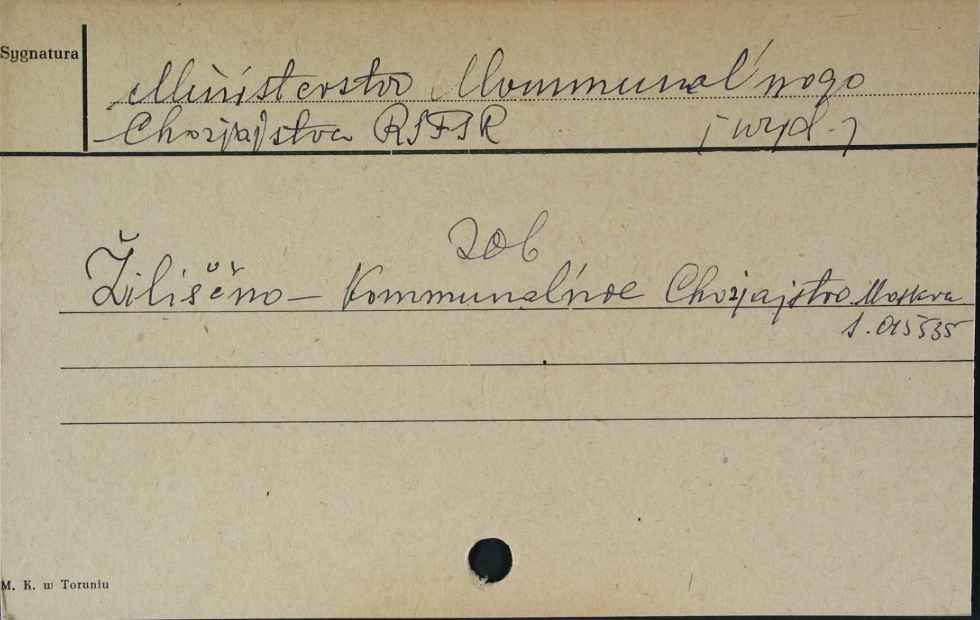 Sygnatura
Ministerstvo Kommunal'nogo
Chozjajstva RSFSR [wyd.]
zob
Žiliščno - Kommunal'noe Chozjajstvo. Moskva
S. 015535
M. K. w Toruniu